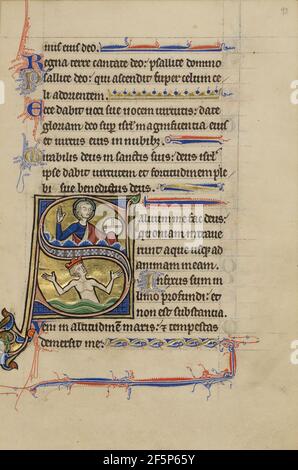 nus eius deo.
Regna terre cantate deo: psallite domino
psallite deo: qui ascendit super celum ce
li ad orientem.
Ecce dabit voci sue vocem virtutis: date
gloriam deo sup isrl magnificentia eius
et virtus eius in nubibz.
Mirabilis deus in sanctis suis: deus isrl
ipse dabit virtutem et fortitudinem ple
bi sue benedictus deus.
Salvum me fac deus:
quoniam intrave
runt aque usq ad
animam meam.
Infixus sum in
limo profundi: et
non est substantia.
Veni in altitudine maris: et tempestas
demersit me.
alamy
Image ID: 2F5P65Y
www.alamy.com